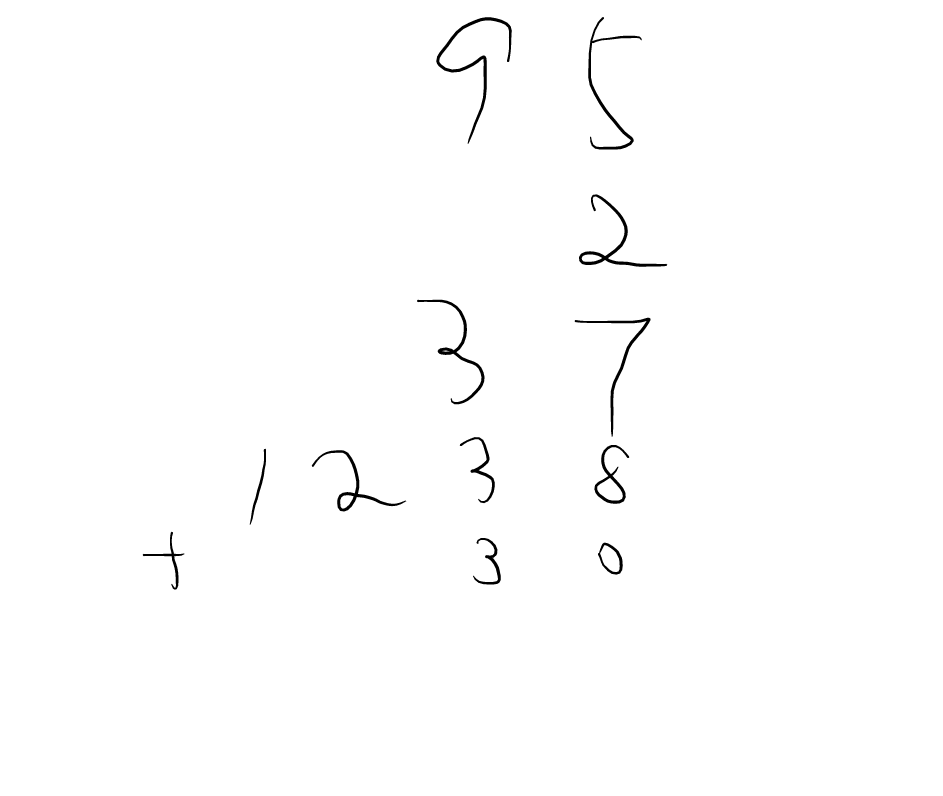 95
2
37
1238
+ 30